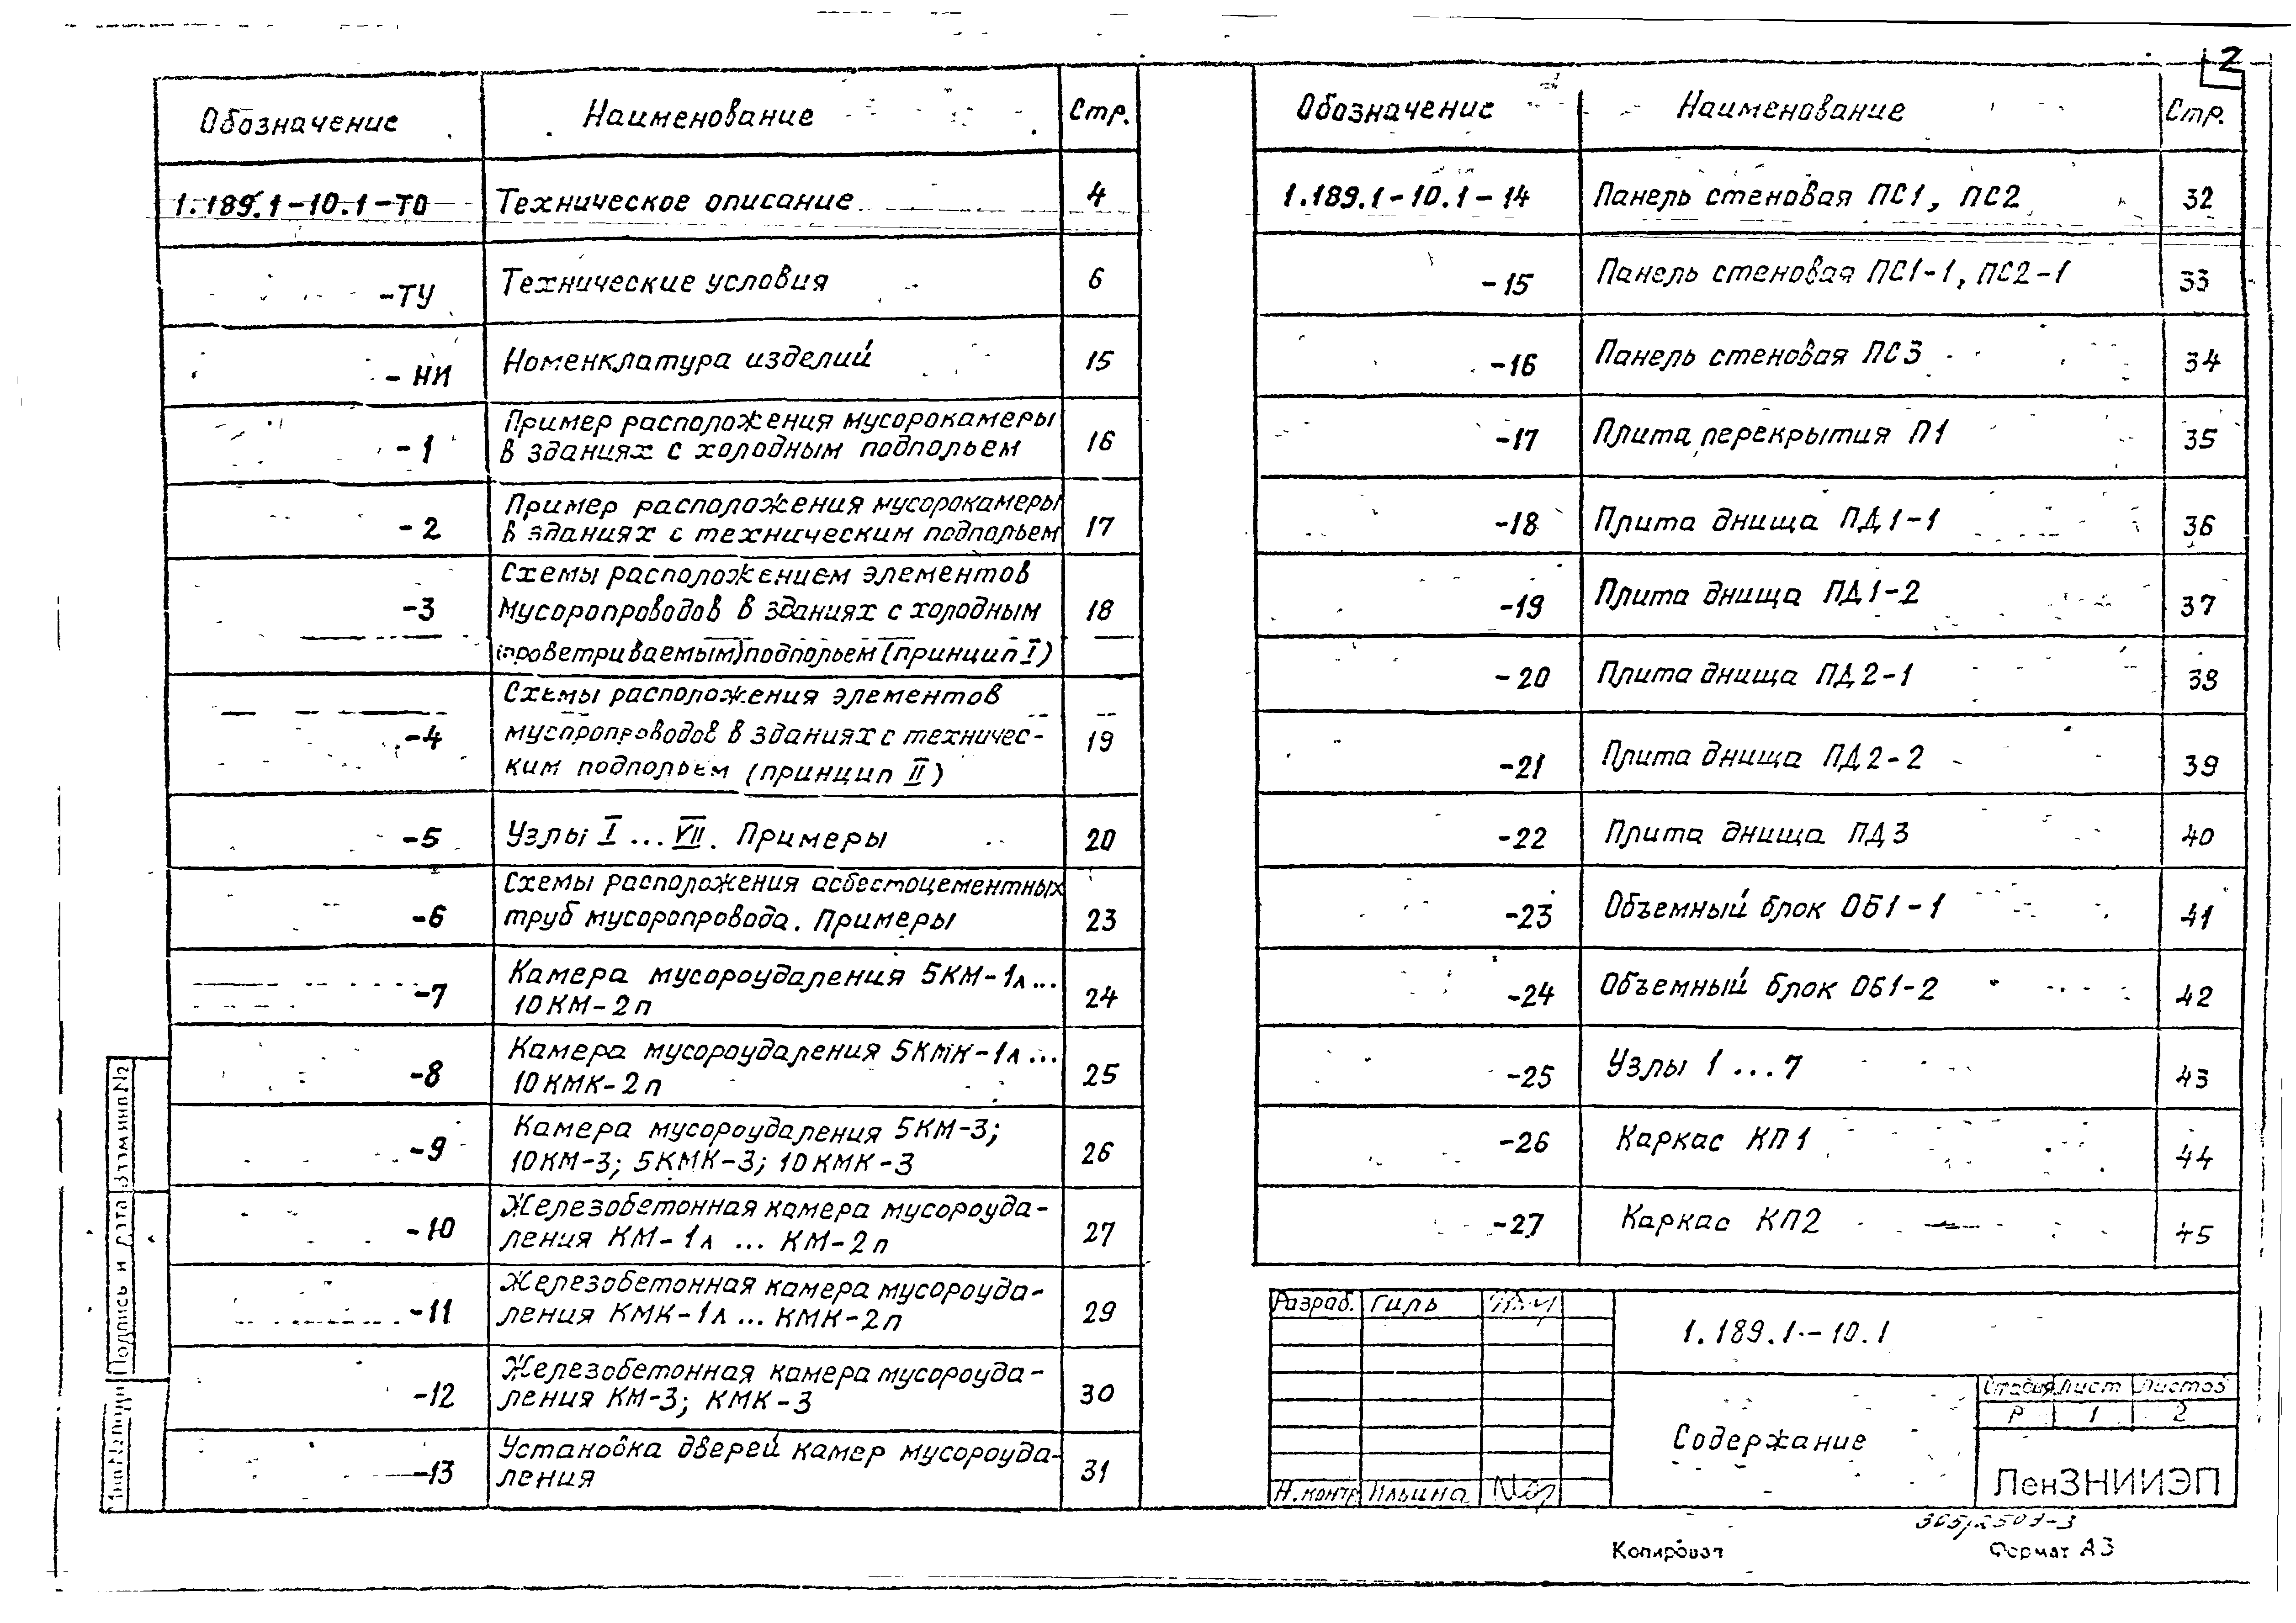 2
Обозначение Наименование Стр.
1.189.1-10.1-ТО Техническое описание 4
-ТУ Технические условия 6
-НИ Номенклатура изделий 15
-1 Пример расположения мусорокамеры
в зданиях с холодным подпольем 16
-2 Пример расположения мусорокамеры
в зданиях с техническим подпольем 17
Схемы расположением элементов
-3 мусоропроводов в зданиях с холодным 18
(проветриваемым) подпольем (принцип I)
Схемы расположения элементов
-4 мусоропроводов в зданиях с техничес- 19
ким подпольем (принцип II)
-5 Узлы I ... VII. Примеры 20
Схемы расположения асбестоцементных
-6 труб мусоропровода. Примеры 23
-7 Камера мусороудаления 5КМ-1л...
10КМ-2п 24
-8 Камера мусороудаления 5КМК-1л...
10КМК-2п 25
-9 Камера мусороудаления 5КМ-3;
10КМ-3; 5КМК-3; 10КМК-3 26
-10 Железобетонная камера мусороуда-
ления КМ-1л ... КМ-2п 27
-11 Железобетонная камера мусороуда-
ления КМК-1л ... КМК-2п 29
-12 Железобетонная камера мусороуда-
ления КМ-3; КМК-3 30
-13 Установка дверей камер мусороуда-
ления 31
Обозначение Наименование Стр.
1.189.1-10.1-14 Панель стеновая ПС1, ПС2 32
-15 Панель стеновая ПС1-1, ПС2-1 33
-16 Панель стеновая ПС3 34
-17 Плита перекрытия П1 35
-18 Плита днища ПД1-1 36
-19 Плита днища ПД1-2 37
-20 Плита днища ПД2-1 38
-21 Плита днища ПД2-2 39
-22 Плита днища ПД3 40
-23 Объемный блок ОБ1-1 41
-24 Объемный блок ОБ1-2 42
-25 Узлы 1 ... 7 43
-26 Каркас КП1 44
-27 Каркас КП2 45
Разраб. Гиль
1.189.1-10.1
Стадия Лист Листов
Р 1 2
Содержание
ЛенЗНИИЭП
Н.контр Ильина
Копировал Формат А3
Взам инв №
Подпись и дата
Инв № подл